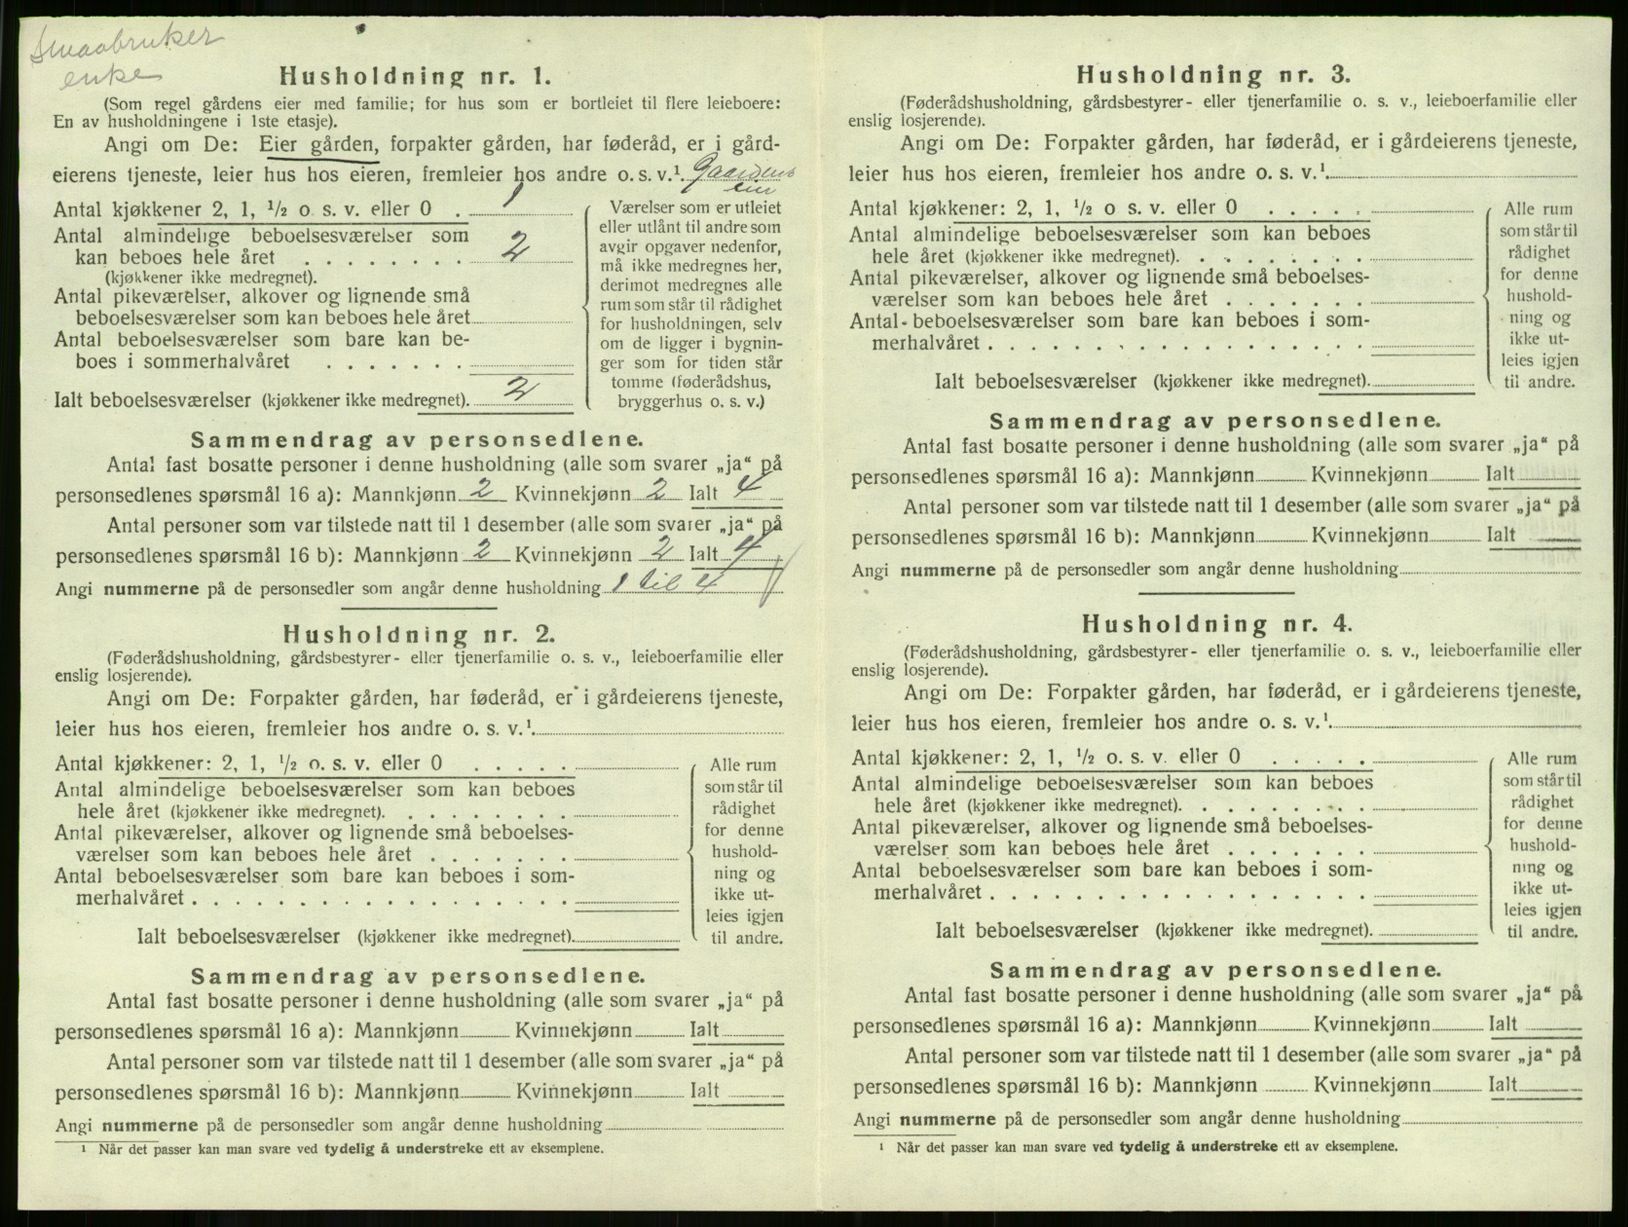 Smaabruker
enke
Husholdning nr. 1.
(Som regel gårdens eier med familie; for hus som er bortleiet til flere leieboere:
En av husholdningene i 1ste etasje).
Angi om De: Eier gården, forpakter gården, har føderåd, er i gård-
eierens tjeneste, leier hus hos eieren, fremleier hos andre o. s. v.¹. Gaardens
eier
Antal kjøkkener 2, 1, ½ o s. v. eller 0 . 1
Antal almindelige beboelsesværelser som
kan beboes hele året . . . . . . . . 2
(kjøkkener ikke medregnet).
Antal pikeværelser, alkover og lignende små
beboelsesværelser som kan beboes hele året
Antal beboelsesværelser som bare kan be-
boes i sommerhalvåret . . . . . . .
Ialt beboelsesværelser (kjøkkener ikke medregnet). 2
Værelser som er utleiet
eller utlånt til andre som
avgir opgaver nedenfor,
må ikke medregnes her,
derimot medregnes alle
rum som står til rådighet
for husholdningen, selv
om de ligger i bygnin-
ger som for tiden står
tomme (føderådshus,
bryggerhus o. s. v.)
Sammendrag av personsedlene.
Antal fast bosatte personer i denne husholdning (alle som svarer „ja“ på
personsedlenes spørsmål 16 a): Mannkjønn 2 Kvinnekjønn 2 Ialt 4
Antal personer som var tilstede natt til 1 desember (alle som svarer „ja“ på
personsedlenes spørsmål 16 b): Mannkjønn 2 Kvinnekjønn 2 Ialt 4
Angi nummerne på de personsedler som angår denne husholdning 1 til 4
Husholdning nr. 2.
(Føderådshusholdning, gårdsbestyrer- eller tjenerfamilie o. s. v., leieboerfamilie eller
enslig losjerende).
Angi om De: Forpakter gården, har føderåd, er i gårdeierens tjeneste,
leier hus hos eieren, fremleier hos andre o. s. v.¹.
Antal kjøkkener: 2, 1, ½ o. s. v. eller 0 . . . . .
Antal almindelige beboelsesværelser som kan beboes
hele året (kjøkkener ikke medregnet). . . . . . . . .
Antal pikeværelser, alkover og lignende små beboelses-
værelser som kan beboes hele året . . . . . . .
Antal beboelsesværelser som bare kan beboes i som-
merhalvåret . . . . . . . . . . . . . . . . . .
Ialt beboelsesværelser (kjøkkener ikke medregnet).
Alle rum
som står til
rådighet
for denne
hushold-
ning og
ikke ut-
leies igjen
til andre.
Sammendrag av personsedlene.
Antal fast bosatte personer i denne husholdning (alle som svarer „ja“ på
personsedlenes spørsmål 16 a): Mannkjønn Kvinnekjønn Ialt
Antal personer som var tilstede natt til 1 desember (alle som svarer „ja“ på
personsedlenes spørsmål 16 b): Mannkjønn Kvinnekjønn Ialt
Angi nummerne på de personsedler som angår denne husholdning
¹ Når det passer kan man svare ved tydelig å understreke ett av eksemplene.
Husholdning nr. 3.
(Føderådshusholdning, gårdsbestyrer- eller tjenerfamilie o. s. v., leieboerfamilie eller
enslig losjerende).
Angi om De: Forpakter gården, har føderåd, er i gårdeierens tjeneste,
leier hus hos eieren, fremleier hos andre o. s. v.¹.
Antal kjøkkener: 2, 1, ½ o s. v. eller 0 . . . . .
Antal almindelige beboelsesværelser som kan beboes
hele året (kjøkkener ikke medregnet). . . . . . . . .
Antal pikeværelser, alkover og lignende små beboelses-
værelser som kan beboes hele året . . . . . . .
Antal beboelsesværelser som bare kan beboes i som-
merhalvåret . . . . . . . . . . . . . . . . . .
Ialt beboelsesværelser (kjøkkener ikke medregnet).
Alle rum
som står til
rådighet
for denne
hushold-
ning og
ikke ut-
leies igjen
til andre.
Sammendrag av personsedlene.
Antal fast bosatte personer i denne husholdning (alle som svarer „ja“ på
personsedlenes spørsmål 16 a): Mannkjønn Kvinnekjønn Ialt
Antal personer som var tilstede natt til 1 desember (alle som svarer „ja“ på
personsedlenes spørsmål 16 b): Mannkjønn Kvinnekjønn Ialt
Angi nummerne på de personsedler som angår denne husholdning
Husholdning nr. 4.
(Føderådshusholdning, gårdsbestyrer- eller tjenerfamilie o. s. v., leieboerfamilie eller
enslig losjerende).
Angi om De: Forpakter gården, har føderåd, er i gårdeierens tjeneste,
leier hus hos eieren, fremleier hos andre o. s. v.¹.
Antal kjøkkener: 2, 1, ½ o. s. v. eller 0 . . . . .
Antal almindelige beboelsesværelser som kan beboes
hele året (kjøkkener ikke medregnet). . . . . . . . .
Antal pikeværelser, alkover og lignende små beboelses-
værelser som kan beboes hele året . . . . . . .
Antal beboelsesværelser som bare kan beboes i som-
merhalvåret . . . . . . . . . . . . . . . . . .
Ialt beboelsesværelser (kjøkkener ikke medregnet).
Alle rum
som står til
rådighet
for denne
hushold-
ning og
ikke ut-
leies igjen
til andre.
Sammendrag av personsedlene.
Antal fast bosatte personer i denne husholdning (alle som svarer „ja“ på
personsedlenes spørsmål 16 a): Mannkjønn Kvinnekjønn Ialt
Antal personer som var tilstede natt til 1 desember (alle som svarer „ja“ på
personsedlenes spørsmål 16 b): Mannkjønn Kvinnekjønn Ialt
Angi nummerne på de personsedler som angår denne husholdning
¹ Når det passer kan man svare ved tydelig å understreke ett av eksemplene.